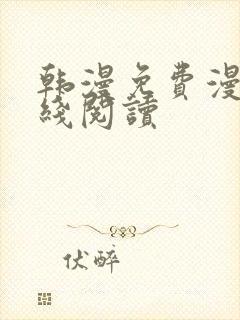 韩漫免费漫
线阅读
伏醉